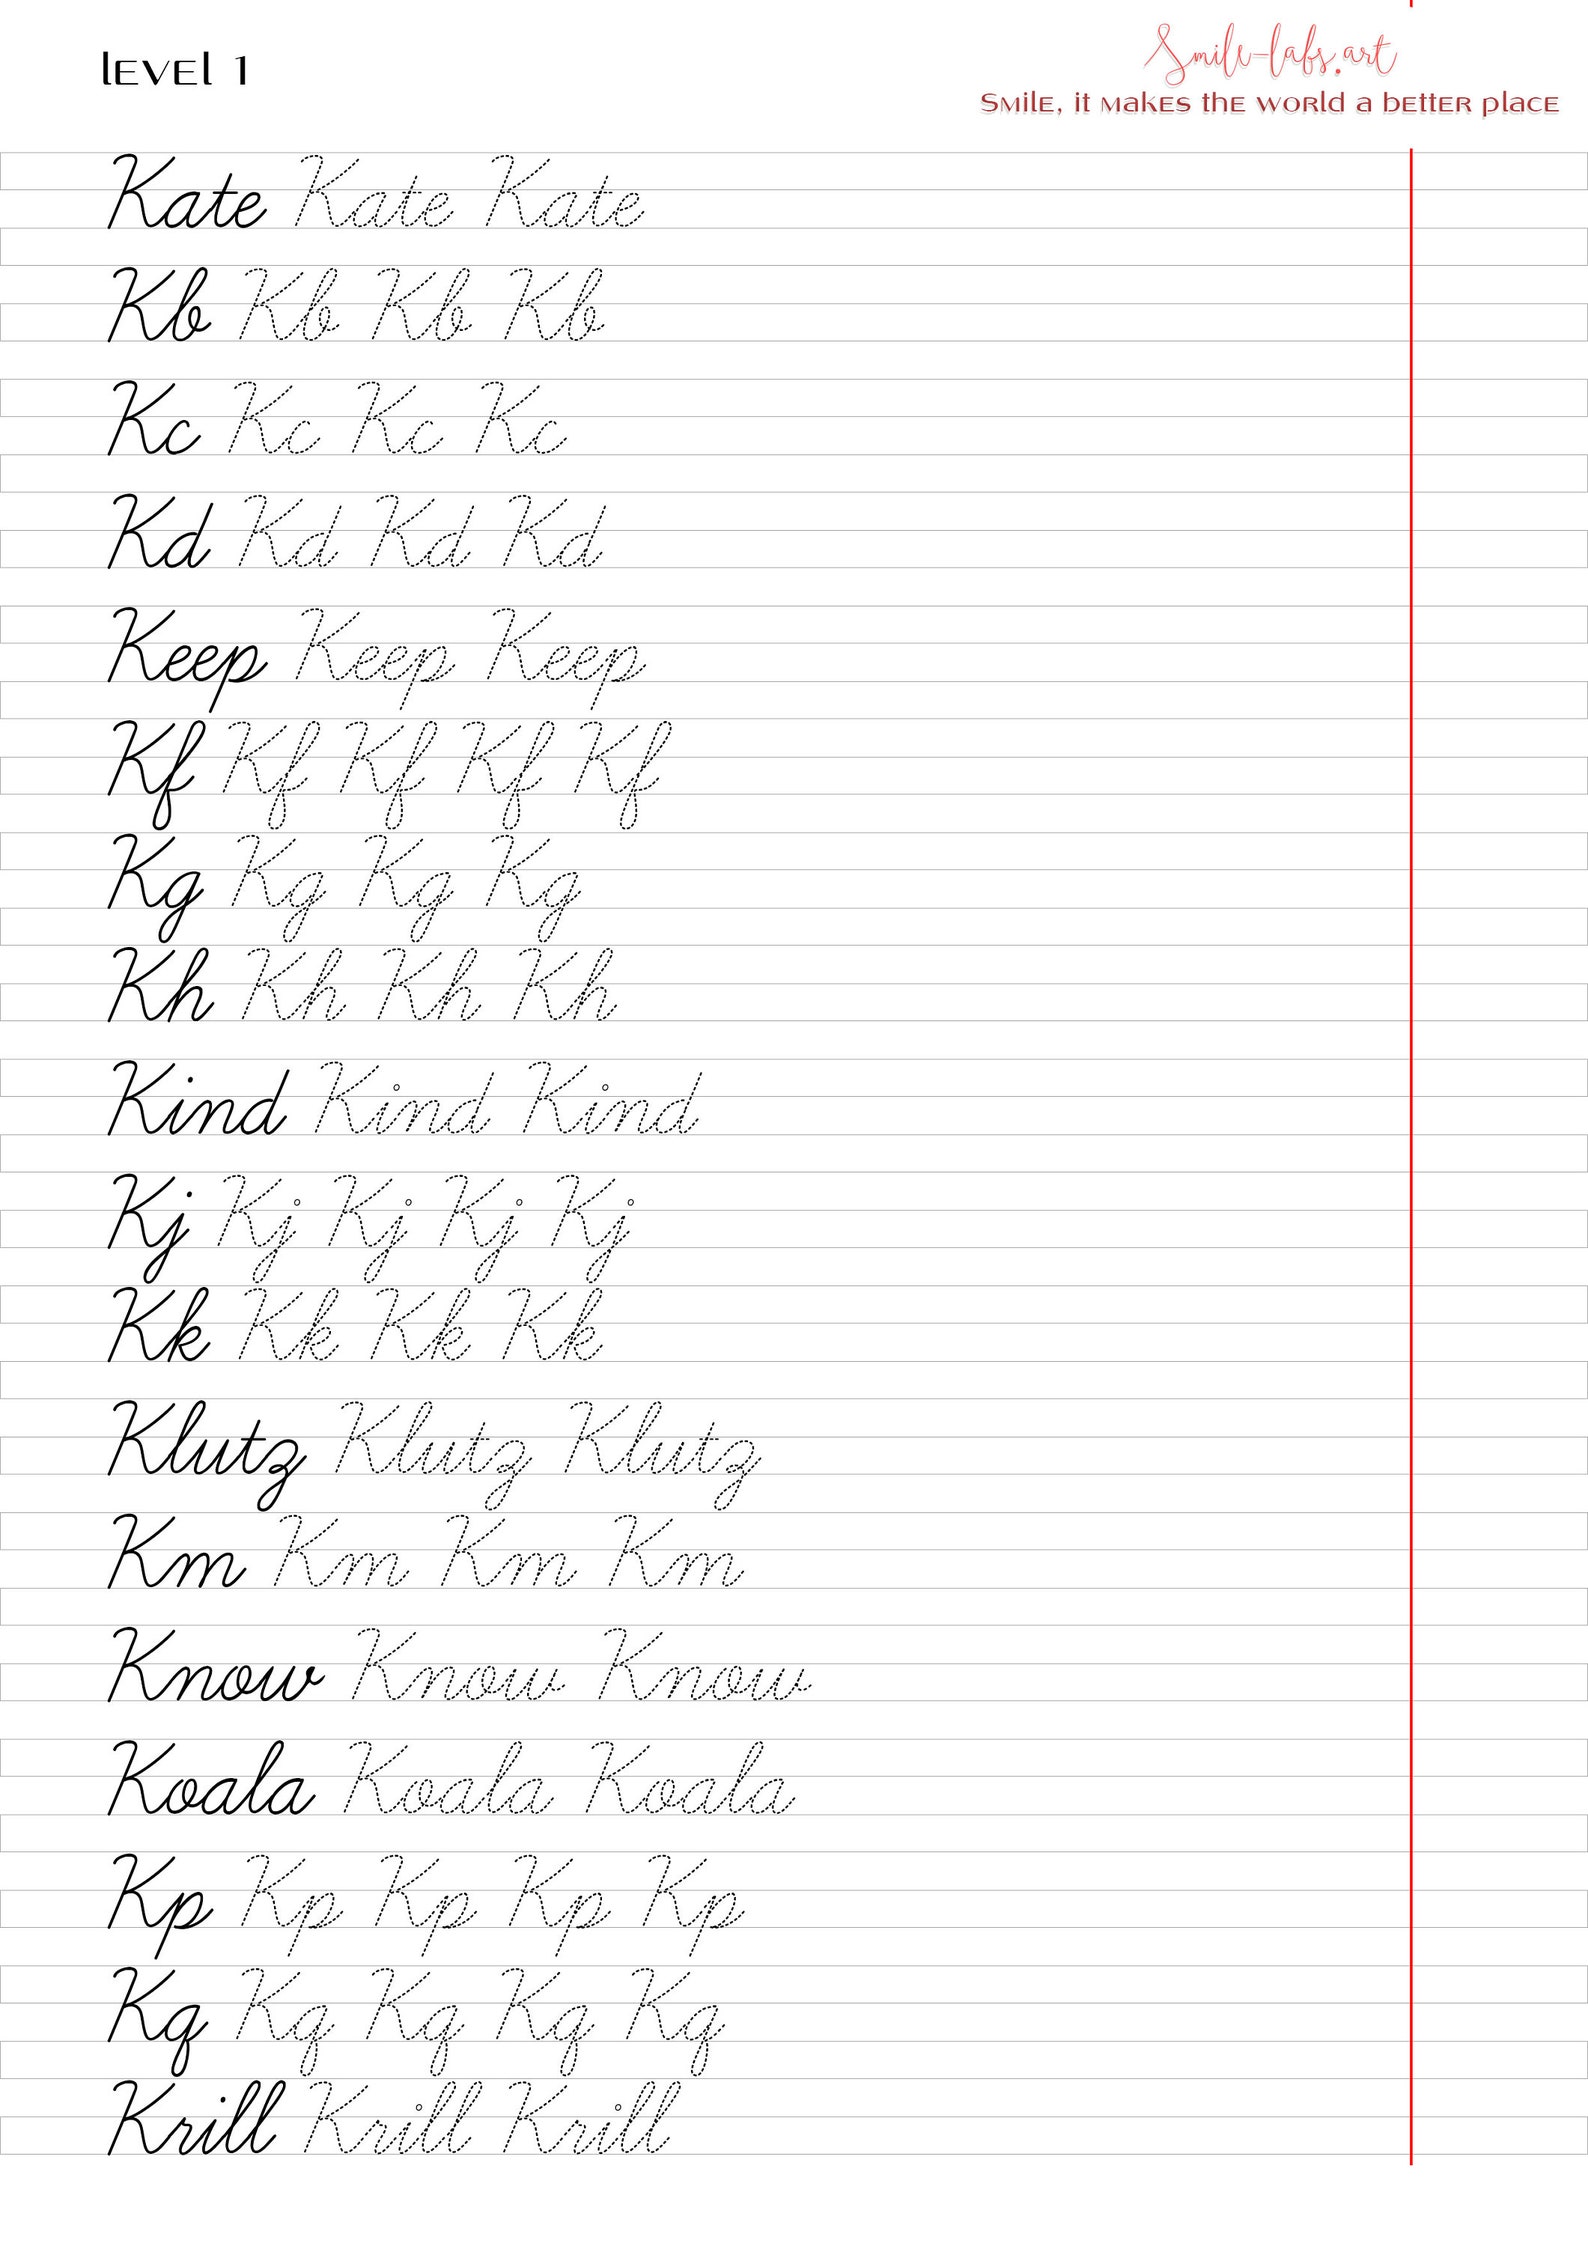 level 1
Smile-labs.art
Smile, it makes the world a better place
Kate Kate Kate
Kb Kb Kb Kb
Kc Kc Kc Kc
Kd Kd Kd Kd
Keep Keep Keep
Kf Kf Kf Kf Kf
Kg Kg Kg Kg
Kh Kh Kh Kh
Kind Kind Kind
Kj Kj Kj Kj Kj
Kk Kk Kk Kk
Klutz Klutz Klutz
Km Km Km Km
Know Know Know
Koala Koala Koala
Kp Kp Kp Kp Kp
Kq Kq Kq Kq Kq
Krill Krill Krill